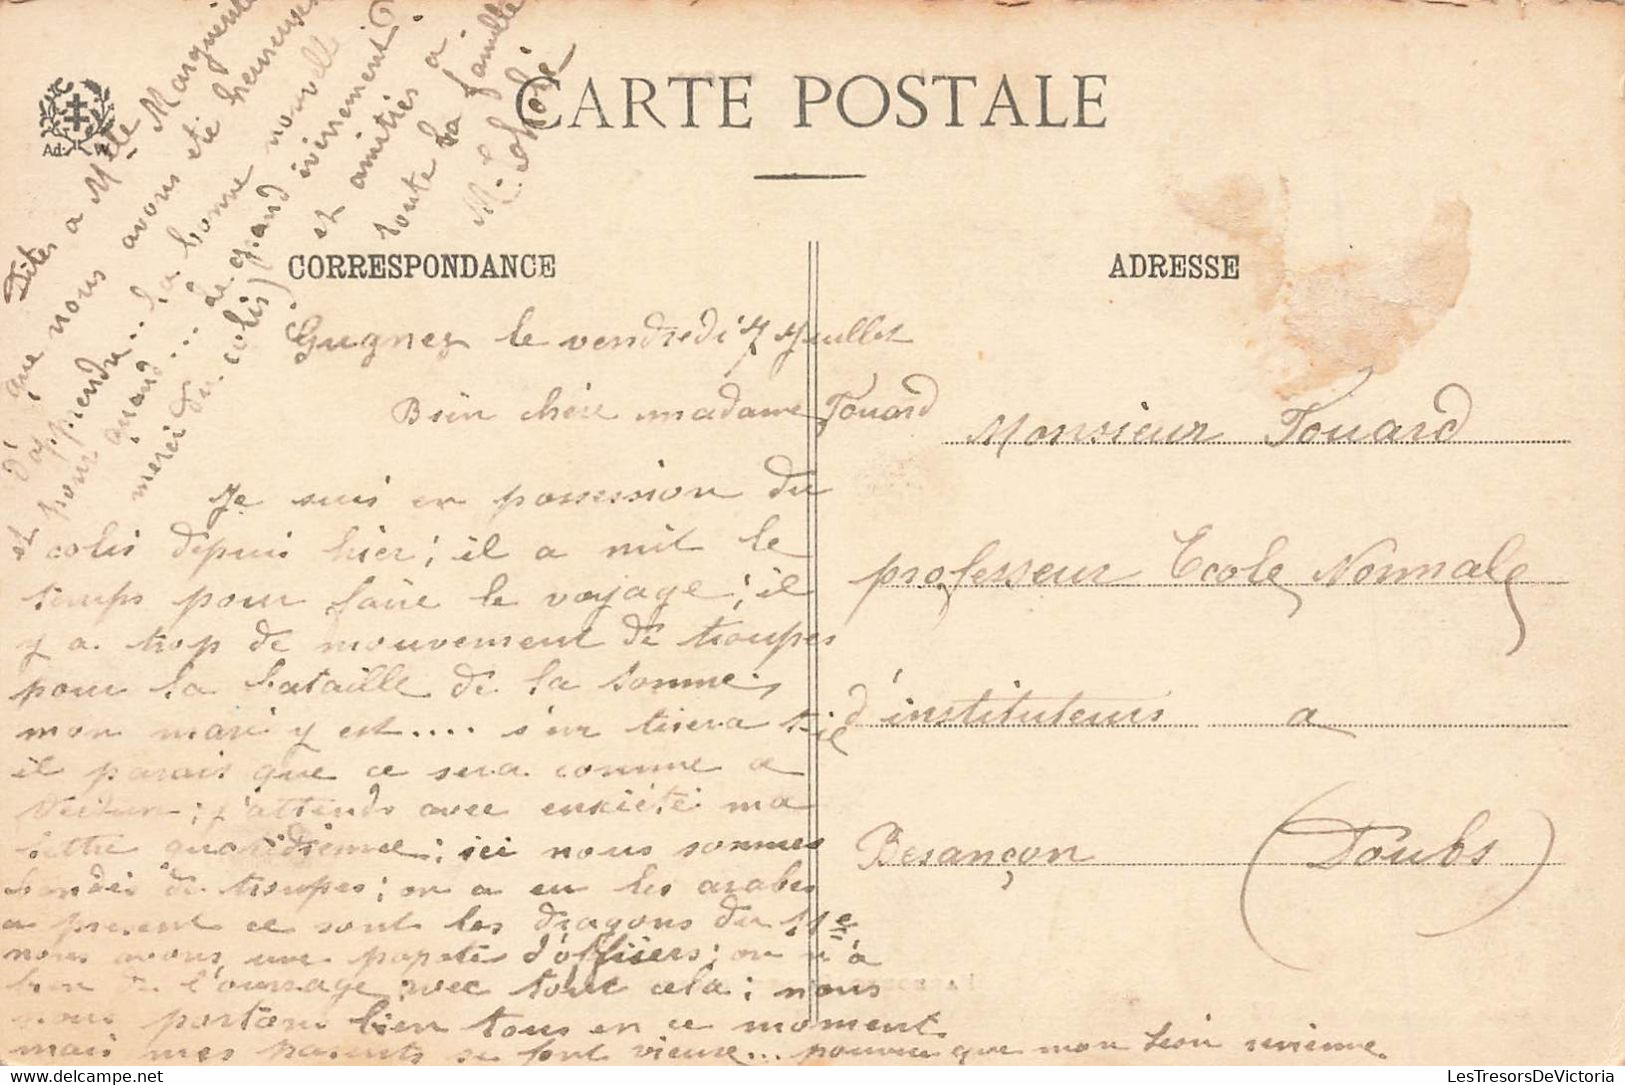 CARTE POSTALE
Ad. W.
CORRESPONDANCE
ADRESSE
Gugney le vendredi 7 Juillet
Bien chère madame Touard
Je suis en possession du
colis depuis hier; il a mit le
temps pour faire le voyage; il
y a trop de mouvement de troupes
pour la bataille de la Somme,
mon mari y est.... s'en tirera t-il
il parais que ce sera comme a
Verdun; j'attends avec enxiété ma
lettre quotidienne; ici nous sommes
bondés de troupes; on a eu les arabes
a present ce sont les dragons du 11e
nous avons une d'officiers; on n'a
bien de l'ouvrage avec tout cela; nous
nous portons bien tous en ce moment
mais mes parents se font vieux... pourvu que mon Léon revienne.
Dites a Melle Marguerite
que nous avons été heureuses
d'apprendre... la bonne nouvelle
et pour quand... le grand évènement?
merci du colis)
et amitiés a
toute la famille
M. Lohoré
Monsieur Touard
professeur Ecole Normale
d'instituteurs a
Besançon (Doubs)
LesTresorsDeVictoria